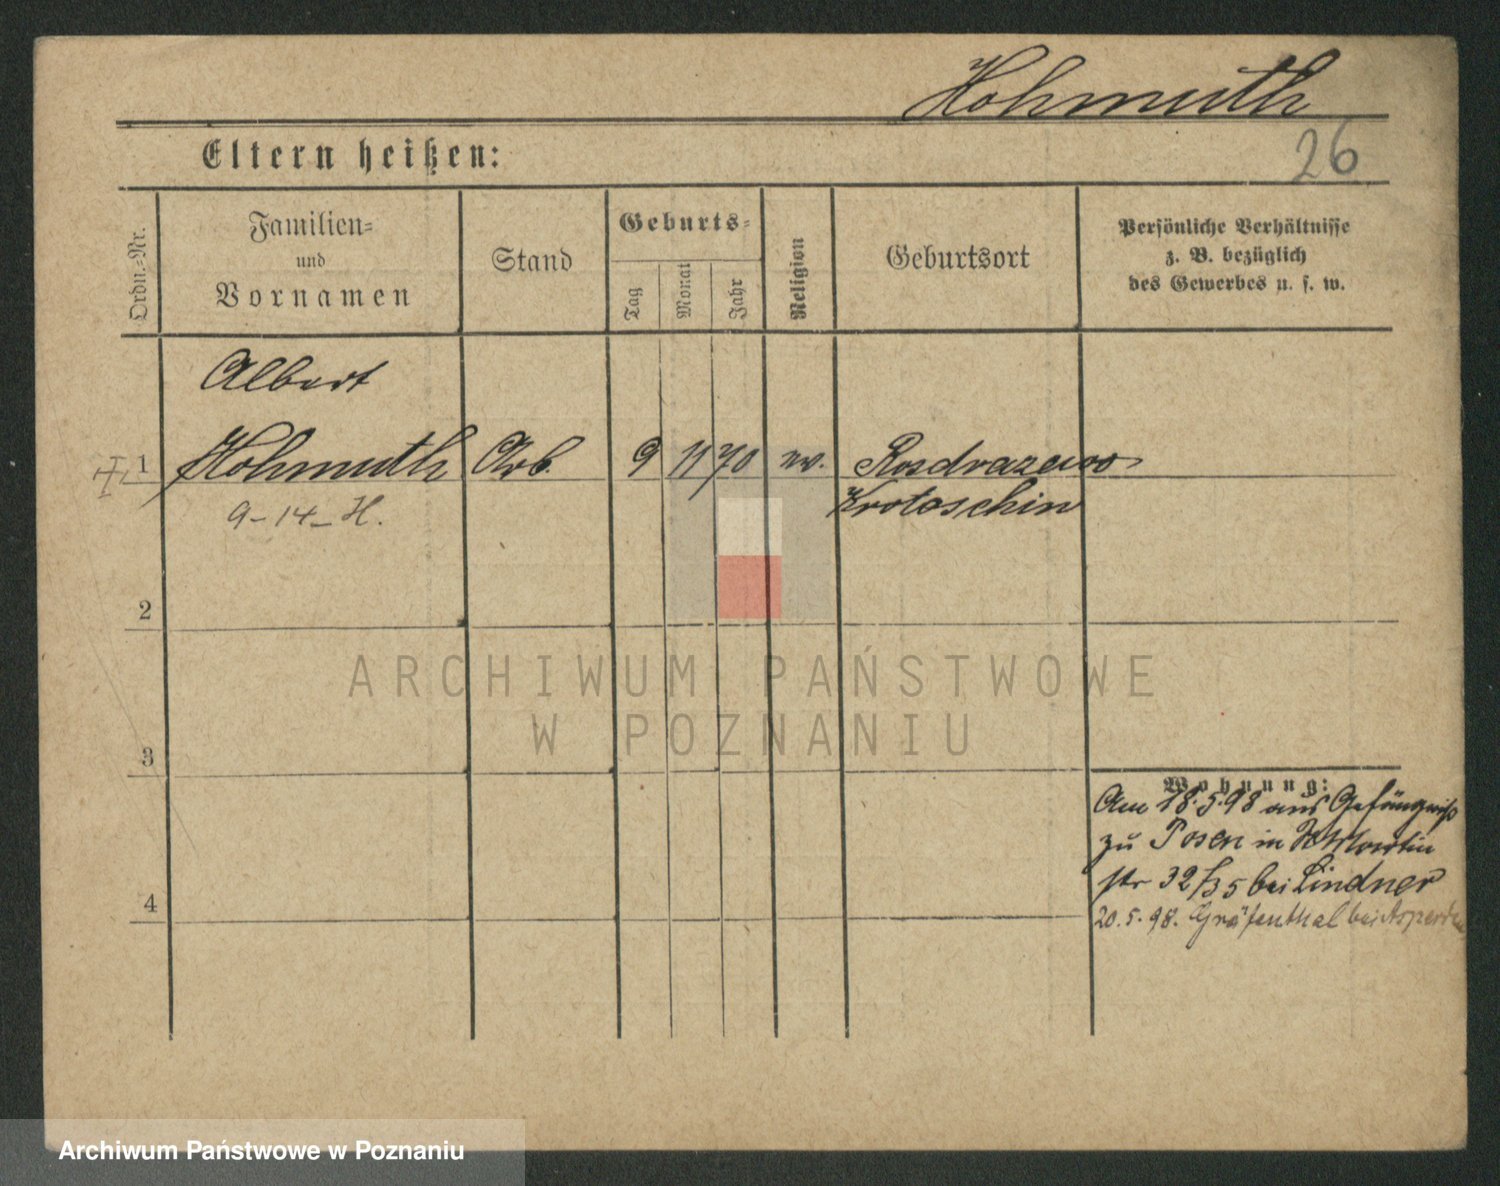 Hohmuth
26
Eltern heißen:
Ordn.-Nr.
Familien-
und
Vornamen
Stand
Geburts-
Tag
Monat
Jahr
Religion
Geburtsort
Persönliche Verhältnisse
z. B. bezüglich
des Gewerbes u. s. w.
Albert
1 Hohmuth Arb. 9 11 70 ev. Rosdrazewo
9-14-H. Krotoschin
2
ARCHIWUM PAŃSTWOWE
W POZNANIU
3
Wohnung:
Am 18.5.98 aus Gefängniß
zu Posen in St Martin
str 32/35 bei Lindner
4
20.5.98. Gräfenthal bei Asperden
Archiwum Państwowe w Poznaniu